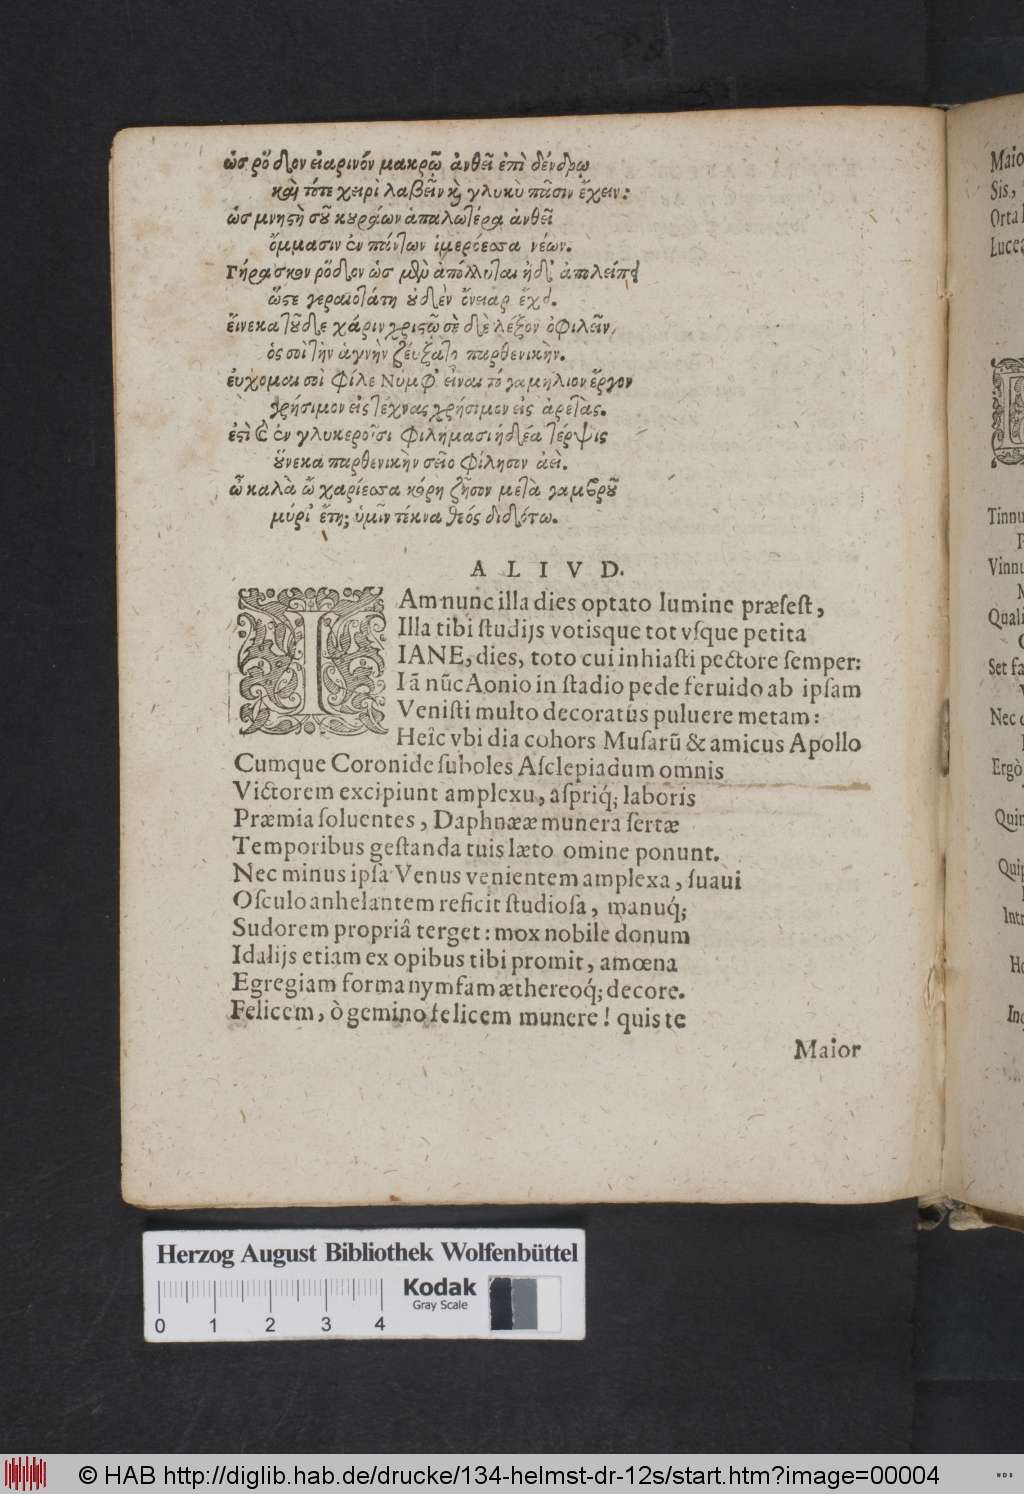 ὡς ῥόδον εἰαρινόν μακρῷ ἀνθεῖ ἐπὶ δένδρῳ
καὶ τότε χειρὶ λαβεῖν καὶ γλυκὺ πᾶσιν ἔχειν:
ὡς μνηστὴ σοῦ κυράων ἁπαλωτέρα ἀνθεῖ
ὄμμασιν ἐν πάντων ἱμερόεσσα νέων.
Γήρασκον ῥόδον ὡς μὲν ἀπόλλυται ἠδ' ἀπολείπει
ὥστε γεραιοτάτη οὐδὲν ὄνειαρ ἔχει.
εἵνεκα τοῦδε χάριν χριστῷ σὲ δὲ λέξον ὀφιλεῖν,
ὁς σοὶ τὴν ἁγνὴν ζεύξατο παρθενικὴν.
ἐυχομαι σοὶ φίλε Νυμφ' εἶναι τό γαμήλιον ἔργον
χρήσιμον εἰς τέχνας χρήσιμον εἰς ἀρετὰς.
ἐστὶ ἐν γλυκεροῖσι φιλημασι ἡδέα τέρψις
οὕνεκα παρθενικὴν σεῖο φίλησον ἀεὶ.
ὦ καλὰ ὦ χαρίεσσα κόρη ζῆσον μετὰ γαμβροῦ
μύρι' ἔτη; ὑμῖν τέκνα θεός διδότω.
A L I V D.
IAm nunc illa dies optato lumine præsest,
Illa tibi studijs votisque tot vsque petita
IANE, dies, toto cui inhiasti pectore semper:
Iā nūc Aonio in stadio pede feruido ab ipsam
Venisti multo decoratus puluere metam:
Heîc vbi dia cohors Musarū & amicus Apollo
Cumque Coronide suboles Asclepiadum omnis
Victorem excipiunt amplexu, aspriq́; laboris
Præmia soluentes, Daphnææ munera sertæ
Temporibus gestanda tuis læto omine ponunt.
Nec minus ipsa Venus venientem amplexa, suaui
Osculo anhelantem reficit studiosa, manuq́;
Sudorem propriâ terget: mox nobile donum
Idalijs etiam ex opibus tibi promit, amœna
Egregiam forma nymfam æthereoq́; decore.
Felicem, ò gemino felicem munere! quis te
Maior
Maio
Sis,
Orta
Lucea
Tinnu
Vinnu
Quali
Set fa
Nec
Ergò
Quin
Quip
Intr
Ho
Inq
Herzog August Bibliothek Wolfenbüttel
Kodak
Gray Scale
0 1 2 3 4
© HAB http://diglib.hab.de/drucke/134-helmst-dr-12s/start.htm?image=00004